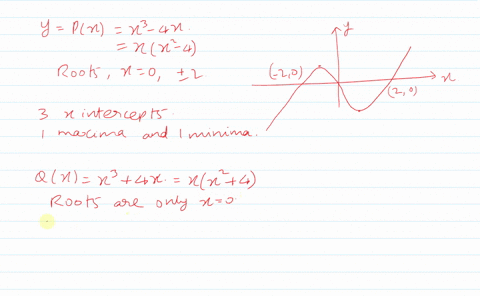 y = P(x) = x³-4x.
= x(x²-4)
Roots, x=0, ±2
3 x intercepts.
1 maxima and 1 minima.
y
(-2,0)
x
(2,0)
Q(x) = x³+4x = x(x²+4)
Roots are only x=0